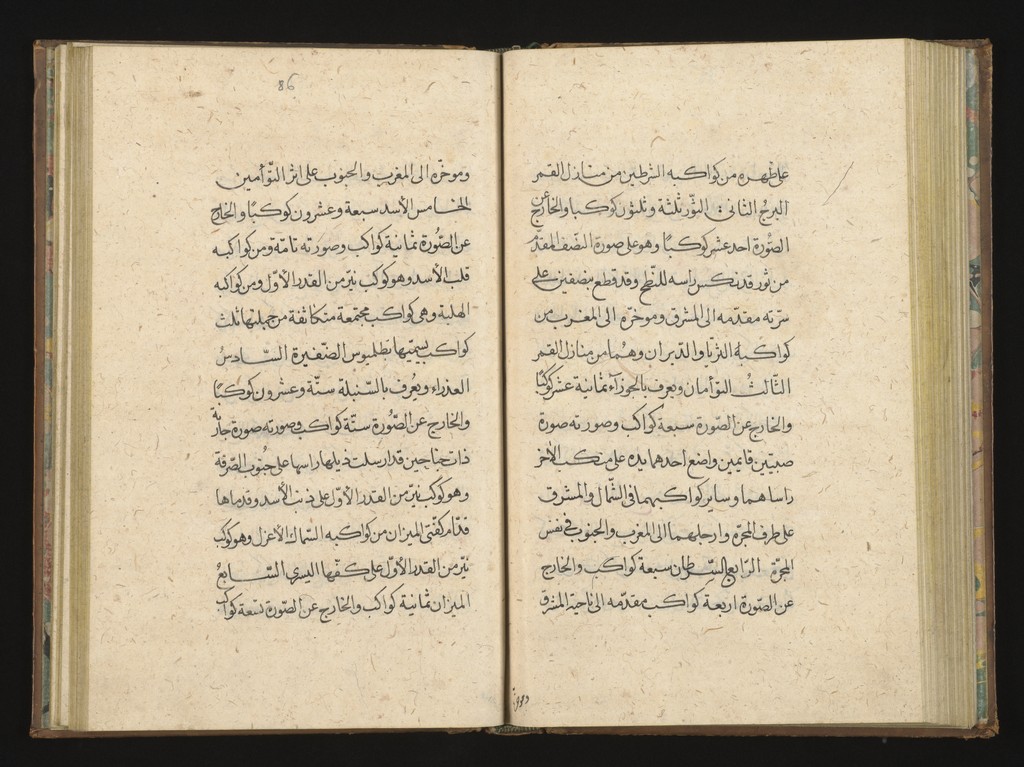 على ظهره من كواكبه الشرطين من منازل القمر
البرج الثاني الثور ثلثة وثلثون كوكبا والخارج عن
الصورة احد عشر كوكبا وهو على صورة النصف المقدم
من ثور قد نكس راسه للنطح وقد قطع بنصفين على
سرته مقدمه الى المشرق وموخره الى المغرب من
كواكبه الثريا والدبران وهما من منازل القمر
الثالث التوأمان ويعرف بالجوزآء ثمانية عشر كوكبا
والخارج عن الصورة سبعة كواكب وصورته صورة
صبيين قايمين واضع احدهما يده على منكب الاخر
راساهما وساير كواكبهما في الشمال والمشرق
على طرف المجرة وارجلهما الى المغرب والجنوب في نفس
المجرة الرابع السرطان سبعة كواكب والخارج
عن الصورة اربعة كواكب مقدمه الى ناحية المشرق
وموخره
86
وموخره الى المغرب والجنوب على اثر التوأمين
الخامس الأسد سبعة وعشرون كوكبا والخارج
عن الصورة ثمانية كواكب وصورته تامة ومن كواكبه
قلب الأسد وهو كوكب نير من القدر الأول ومن كواكبه
الهلبة وهي كواكب مجتمعة متكاثفة من جملتها ثلث
كواكب يسميها بطلميوس الضفيرة السادس
العذراء ويعرف بالسنبلة ستة وعشرون كوكبا
والخارج عن الصورة ستة كواكب وصورته صورة جارية
ذات جناحين قد ارسلت ذيلها راسها على جنوب الصرفة
وهو كوكب نير من القدر الأول على ذنب الأسد وقدماها
قدام كفتي الميزان من كواكبه السماك الأعزل وهو كوكب
نير من القدر الأول على كفها اليسري السابع
الميزان ثمانية كواكب والخارج عن الصورة تسعة كواكب